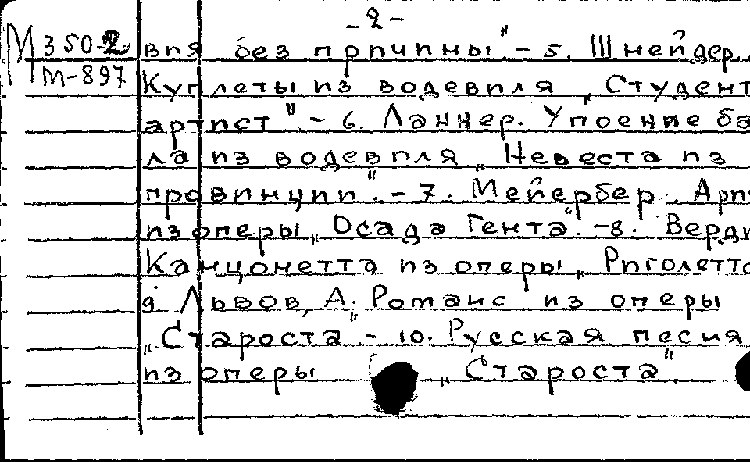 -2-
М 350-2 вля без причины" - 5. Шнейдер.
М-897 Куплеты из водевиля „Студент
артист" - 6. Ланнер. Упоение ба
ла из водевиля „Невеста из
провинции". - 7. Мейербер. Ари
из оперы „Осада Гента". - 8. Верди
Канцонетта из оперы „Риголетто
9 Львов, А. Романс из оперы
„Староста" - 10. Русская песня
из оперы „Староста".